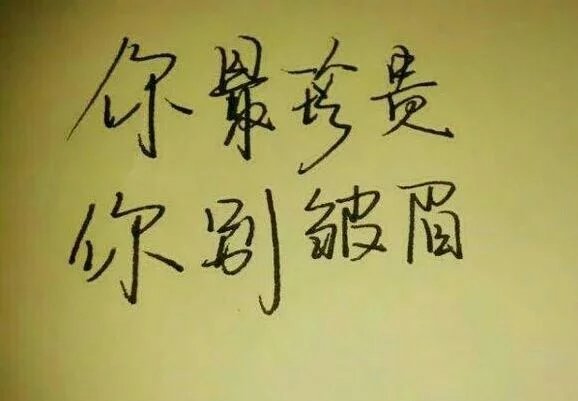 你最珍贵
你别皱眉